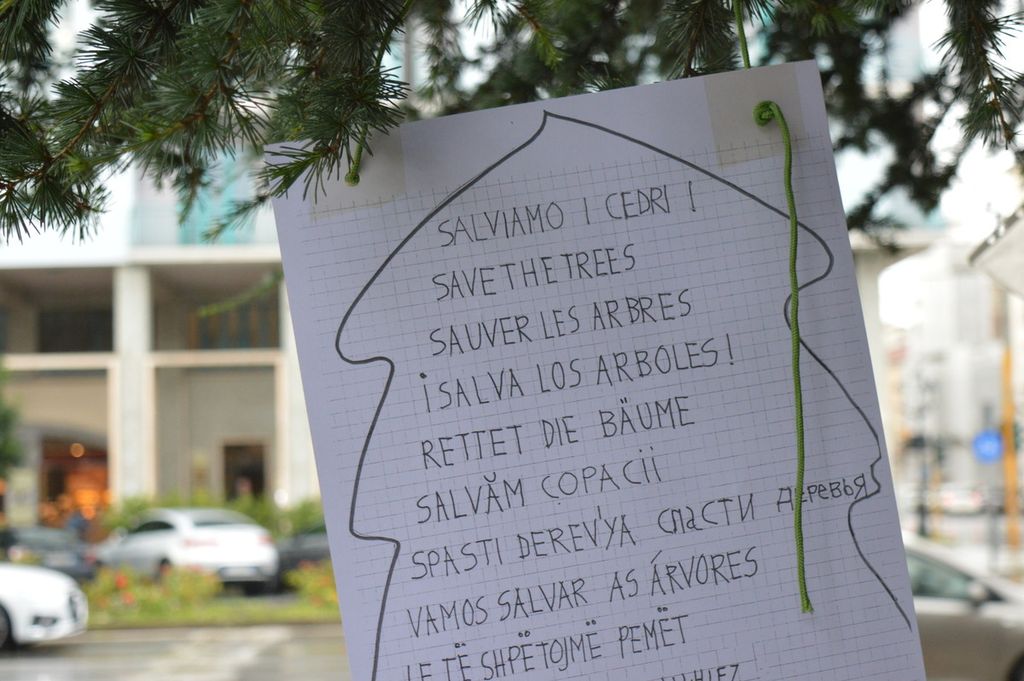 SALVIAMO I CEDRI !
SAVE THE TREES
SAUVER LES ARBRES
¡SALVA LOS ARBOLES!
RETTET DIE BÄUME
SALVĂM COPACII
SPASTI DEREV'YA СПАСТИ ДЕРЕВЬЯ
VAMOS SALVAR AS ÁRVORES
LE TË SHPËTOJMË PEMËT